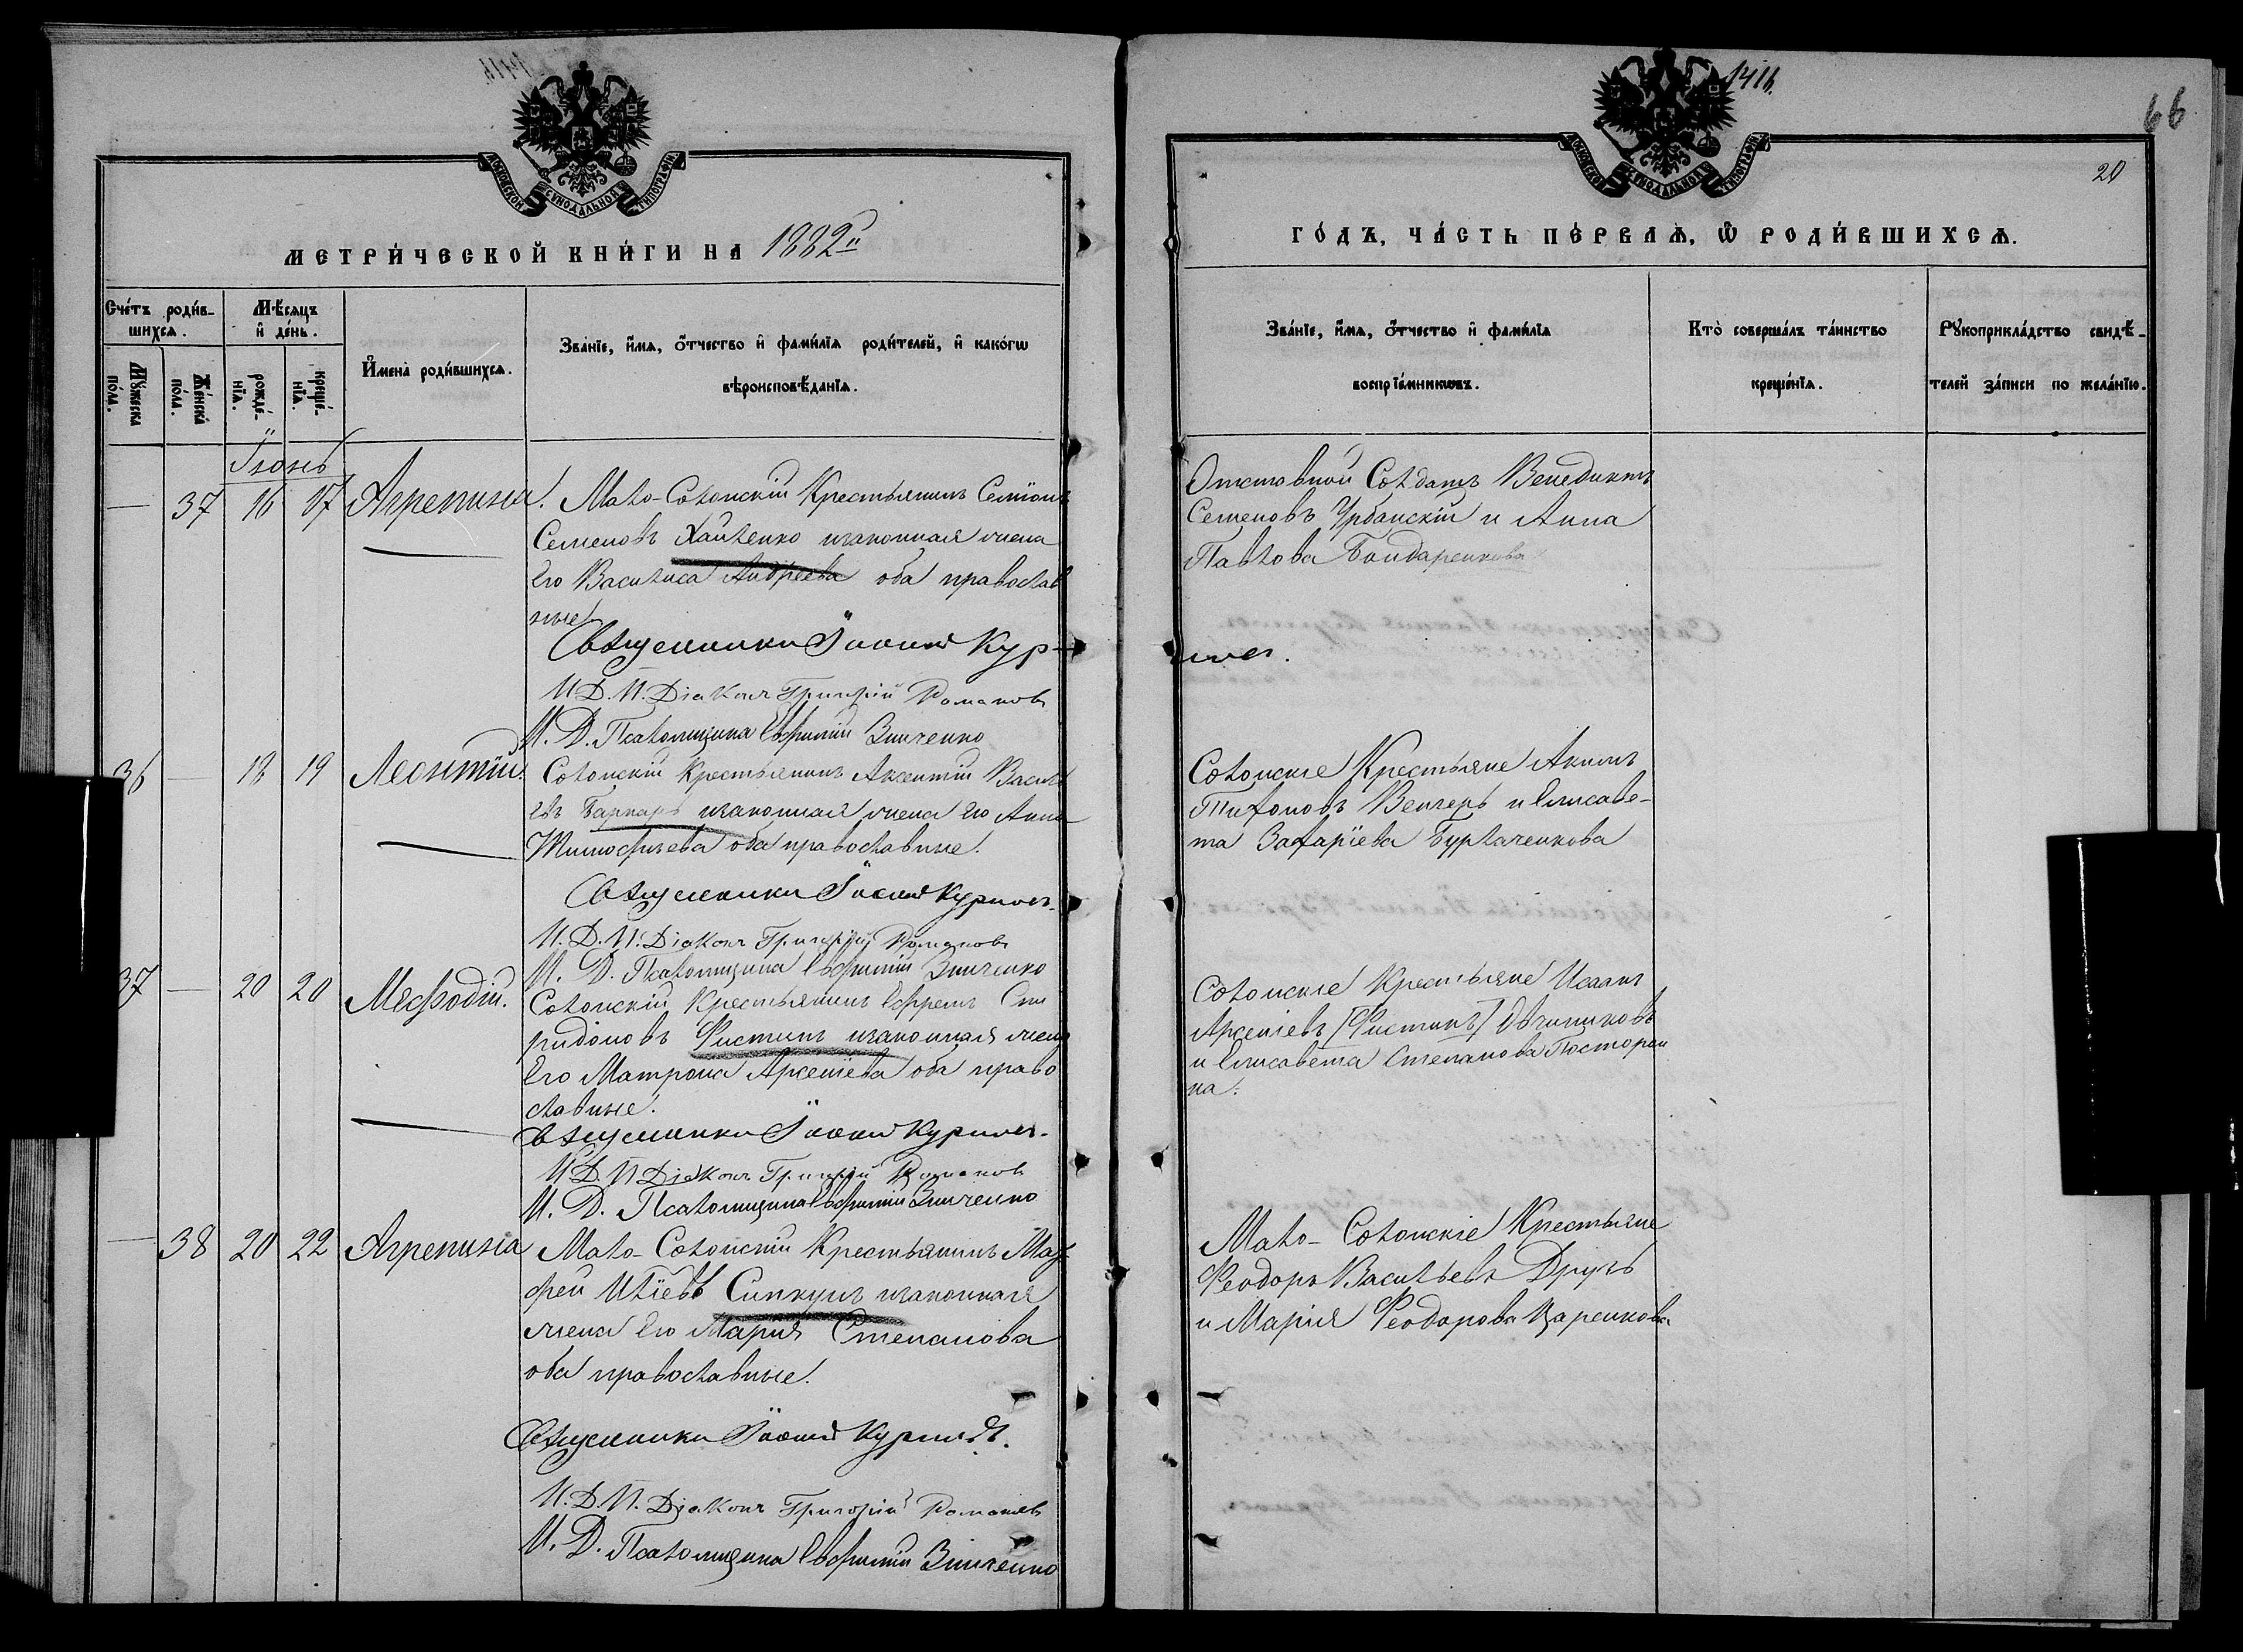 1416.
66
20
МОСКОВСКОЙ СѴНОДАЛЬНОЙ ТИПОГРАФІИ
МЕТРИ́ЧЕСКОЙ КНИ́ГИ НА 1882й
Сче́тъ роди́в-
шихсѧ.
Мѣ́сѧцъ
и҆ де́нь.
И҆мена̀ роди́вшихсѧ.
Зва́нїе, и҆́мѧ, ѻ҆́тчество и҆ фами́лїѧ роди́телей, и҆ како́гѡ
вѣроисповѣ́данїѧ.
Мꙋ́жеска
по́ла.
Же́нска
по́ла.
рожде́-
нїѧ.
креще́-
нїѧ.
Іюнь
— 37 16 17 Агрепина. Мало-Солонскій Крестьянинъ Семіонъ
Семеновъ Хайленко изаконная жена
Его Василиса Андреева оба православ
ные
Священникъ Іоаннъ Кур-
И.Д.П. Діаконъ Григорій Романовъ
И. Д. Псаломщика Евфимій Зинченко
36 — 18 19 Леонтій. Солонскій Крестьянинъ Авксентій Василь
евъ Барнаръ изаконная жена его Анна
Тимофеева оба православные.
Священникъ Іоаннъ Куриловъ.
И.Д.П. Діаконъ Григорій Романовъ
И. Д. Псаломщика Евфимій Зинченко
37 — 20 20 Меѳодій. Солонскій Крестьянинъ Ефремъ Спи
ридоновъ Фистинъ изаконная жена
Его Матрона Арсеніева оба право
славные.
Священникъ Іоаннъ Куриловъ.
И.Д.П. Діаконъ Григорій Романовъ
И. Д. Псаломщика Евфимій Зинченко
— 38 20 22 Агрепина Мало-Солонскій Крестьянинъ Мат
фей Иліевъ Сипкунъ изаконная
жена Его Марія Степанова
оба православные.
Священникъ Іоаннъ Куриловъ.
И.Д.П. Діаконъ Григорій Романовъ
И. Д. Псаломщика Евфимій Зинченко
МОСКОВСКОЙ СѴНОДАЛЬНОЙ ТИПОГРАФІИ
ГО́ДЪ, ЧА́СТЬ ПЕ́РВАѦ, Ѡ҆ РОДИ́ВШИХСѦ.
Зва́нїе, и҆́мѧ, ѻ҆́тчество и҆ фами́лїѧ
воспрїе́мникѡвъ.
Кто̀ соверша́лъ та́инство
креще́нїѧ.
Рꙋкоприкла́дство свидѣ́-
телей за́писи по жела́нїю.
Отставной Солдатъ Венедиктъ
Семеновъ Урбанскій и Анна
Павлова Бондаренкова
иловъ.
Солонскіе Крестьяне Акимъ
Тихоновъ Венгеръ и Елисаве-
та Захаріева Бурлаченкова
Солонскіе Крестьяне Исаакъ
Арсеніевъ [Фистинъ] Овчинниковъ
и Елисавета Степанова Посторон
на.
Мало-Солонскіе Крестьяне
Феодоръ Васильевъ Другъ
и Марія Феодорова Царенкова